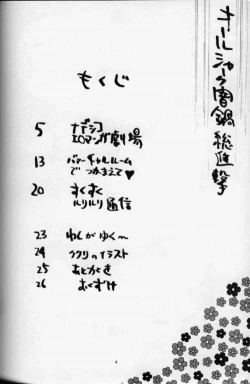 オールジャーク闇鍋総進撃
もくじ
5 ナデシコ
エロマンガ劇場
13 バーチャルルーム
でつかまえて♥
20 すくすく
ルリルリ通信
23 わしがゆく〜
24 ククリのイラスト
25 あとがき
26 おくずけ
4